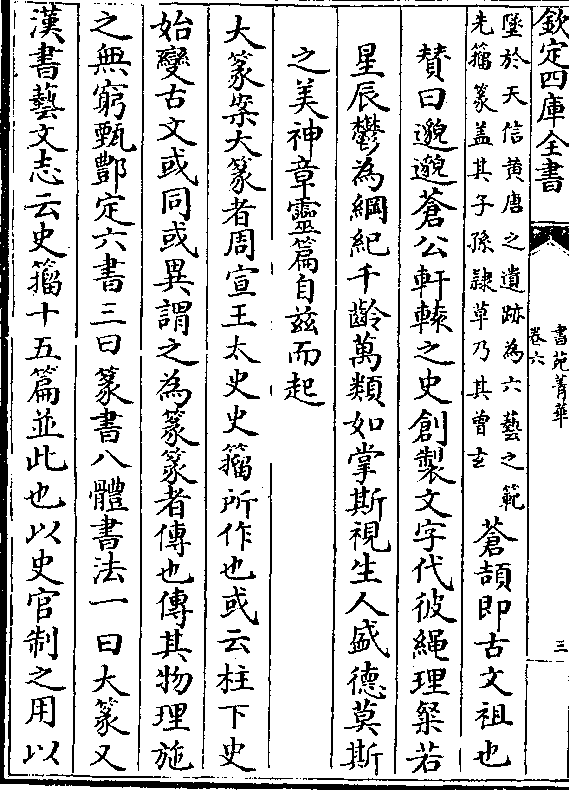 欽定四庫全書
書苑菁華
卷六
三
墜於天信黄唐之遺跡為六藝之範
先籀篆盖其子孫隷草乃其曾玄
蒼頡即古文祖也
贊曰邈邈蒼公軒轅之史創製文字代彼繩理粲若
星辰鬱為綱紀千齡萬類如掌斯視生人盛德莫斯
之美神章靈篇自兹而起
大篆案大篆者周宣王太史史籀所作也或云柱下史
始變古文或同或異謂之為篆篆者傳也傳其物理施
之無窮甄酆定六書三曰篆書八體書法一曰大篆又
漢書藝文志云史籀十五篇並此也以史官制之用以